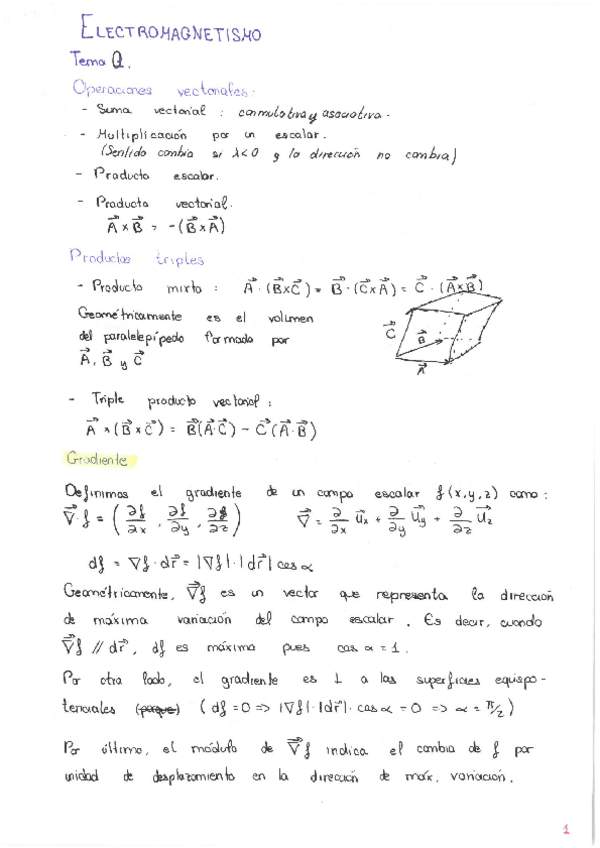 ELECTROMAGNETISMO
Tema 0.
Operaciones vectoriales.
- Suma vectorial : conmutativa y asociativa.
- Multiplicación por un escalar.
(Sentido cambia si λ<0 y la dirección no cambia)
- Producto escalar.
- Producto vectorial.
A⃗ x B⃗ = -(B⃗ x A⃗)
Productos triples
- Producto mixto : A⃗ · (B⃗xC⃗) = B⃗ · (C⃗xA⃗) = C⃗ · (A⃗xB⃗)
Geométricamente es el volumen
del paralelepípedo formado por
A⃗, B⃗ y C⃗
C⃗
B⃗
A⃗
- Triple producto vectorial :
A⃗ x (B⃗ x C⃗) = B⃗(A⃗·C⃗) - C⃗(A⃗·B⃗)
Gradiente
Definimos el gradiente de un campo escalar f(x,y,z) como :
∇⃗·f = (∂f/∂x , ∂f/∂y , ∂f/∂z) ∇⃗ = ∂/∂x u⃗x + ∂/∂y u⃗y + ∂/∂z u⃗z
df = ∇f · dr⃗ = |∇f| · |dr⃗| cos α
Geométricamente, ∇⃗f es un vector que representa la dirección
de máxima variación del campo escalar. Es decir, cuando
∇⃗f // dr⃗, df es máxima pues cos α = 1.
Por otro lado, el gradiente es ⊥ a las superficies equipo-
tenciales (porque) ( df = 0 => |∇f|·|dr⃗|·cos α = 0 => α = π/2 )
Por último, el módulo de ∇⃗f indica el cambio de f por
unidad de desplazamiento en la dirección de máx. variación.
1